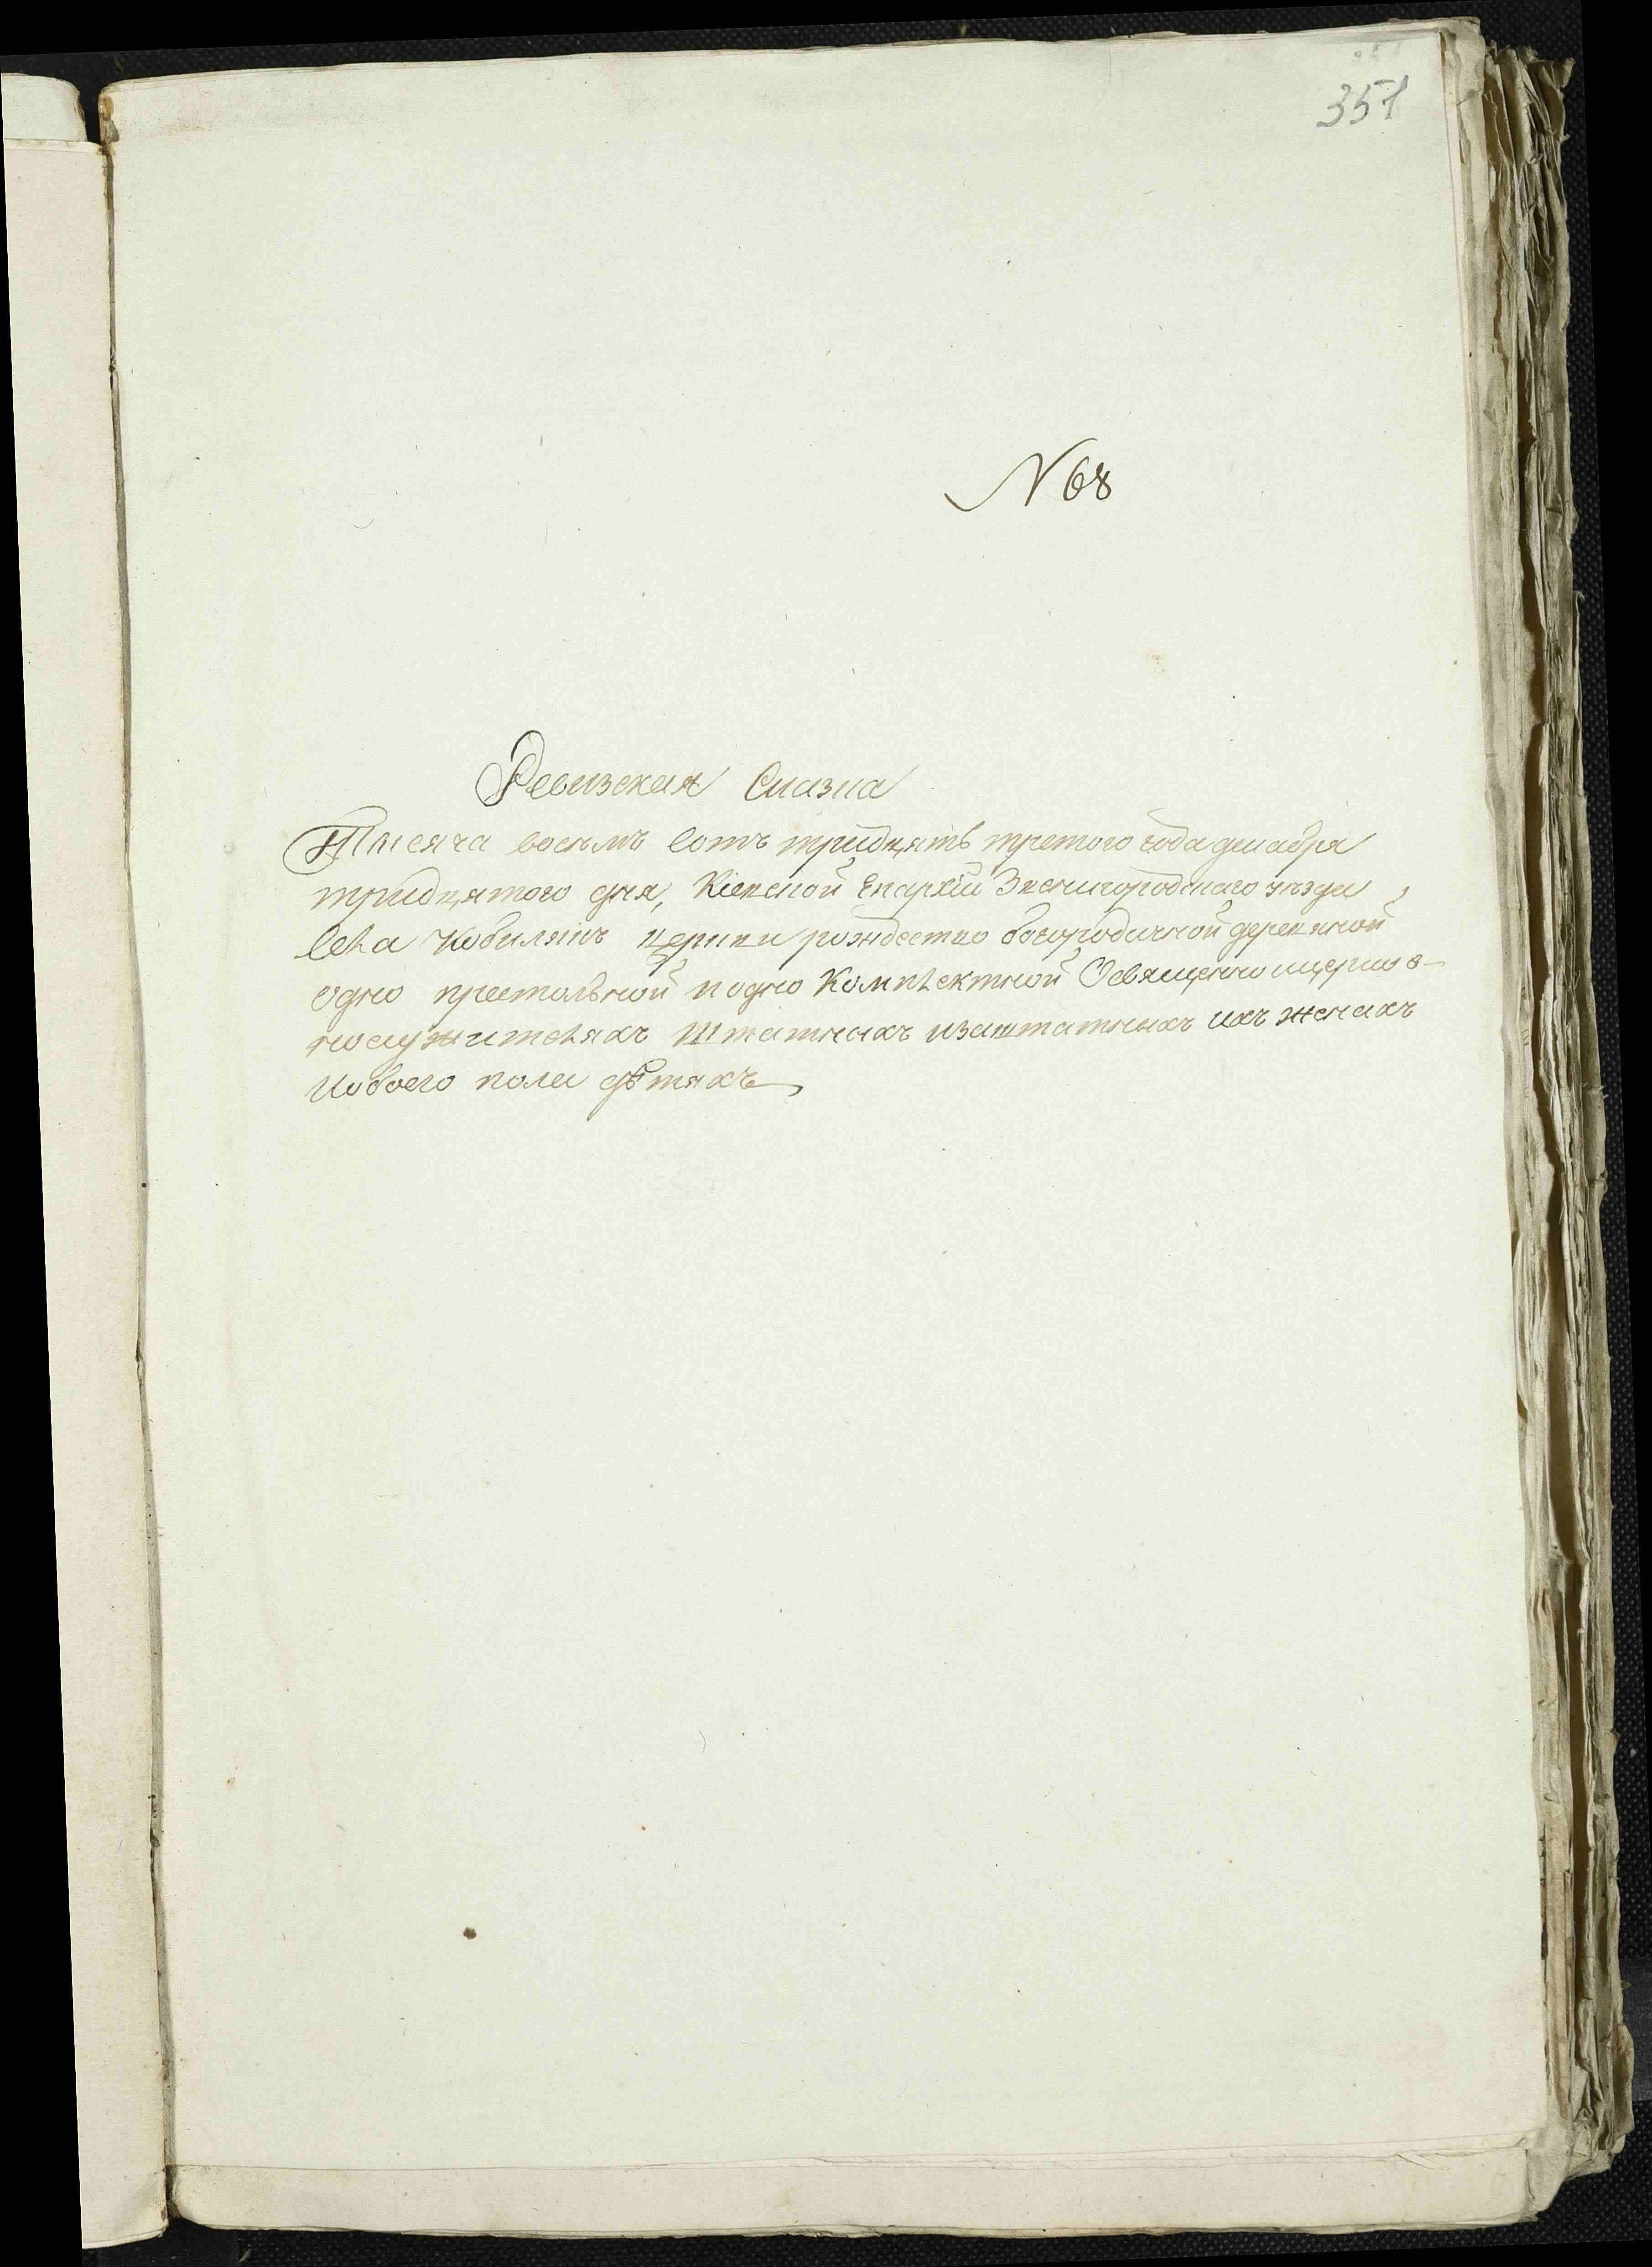 351
N 68
Ревизская Сказка
Тысяча восемъ сотъ тридцять третого года декабря
тридцятого дня, Кіевской Епархіи Звенигородскаго уѣзда,
села Кобилякъ церкви рождество богородичной деревяной
одно престольной и одно комплектной О священно и церков-
нослужителяхъ штатныхъ и заштатныхъ ихъ женахъ
и обоего пола дѣтяхъ